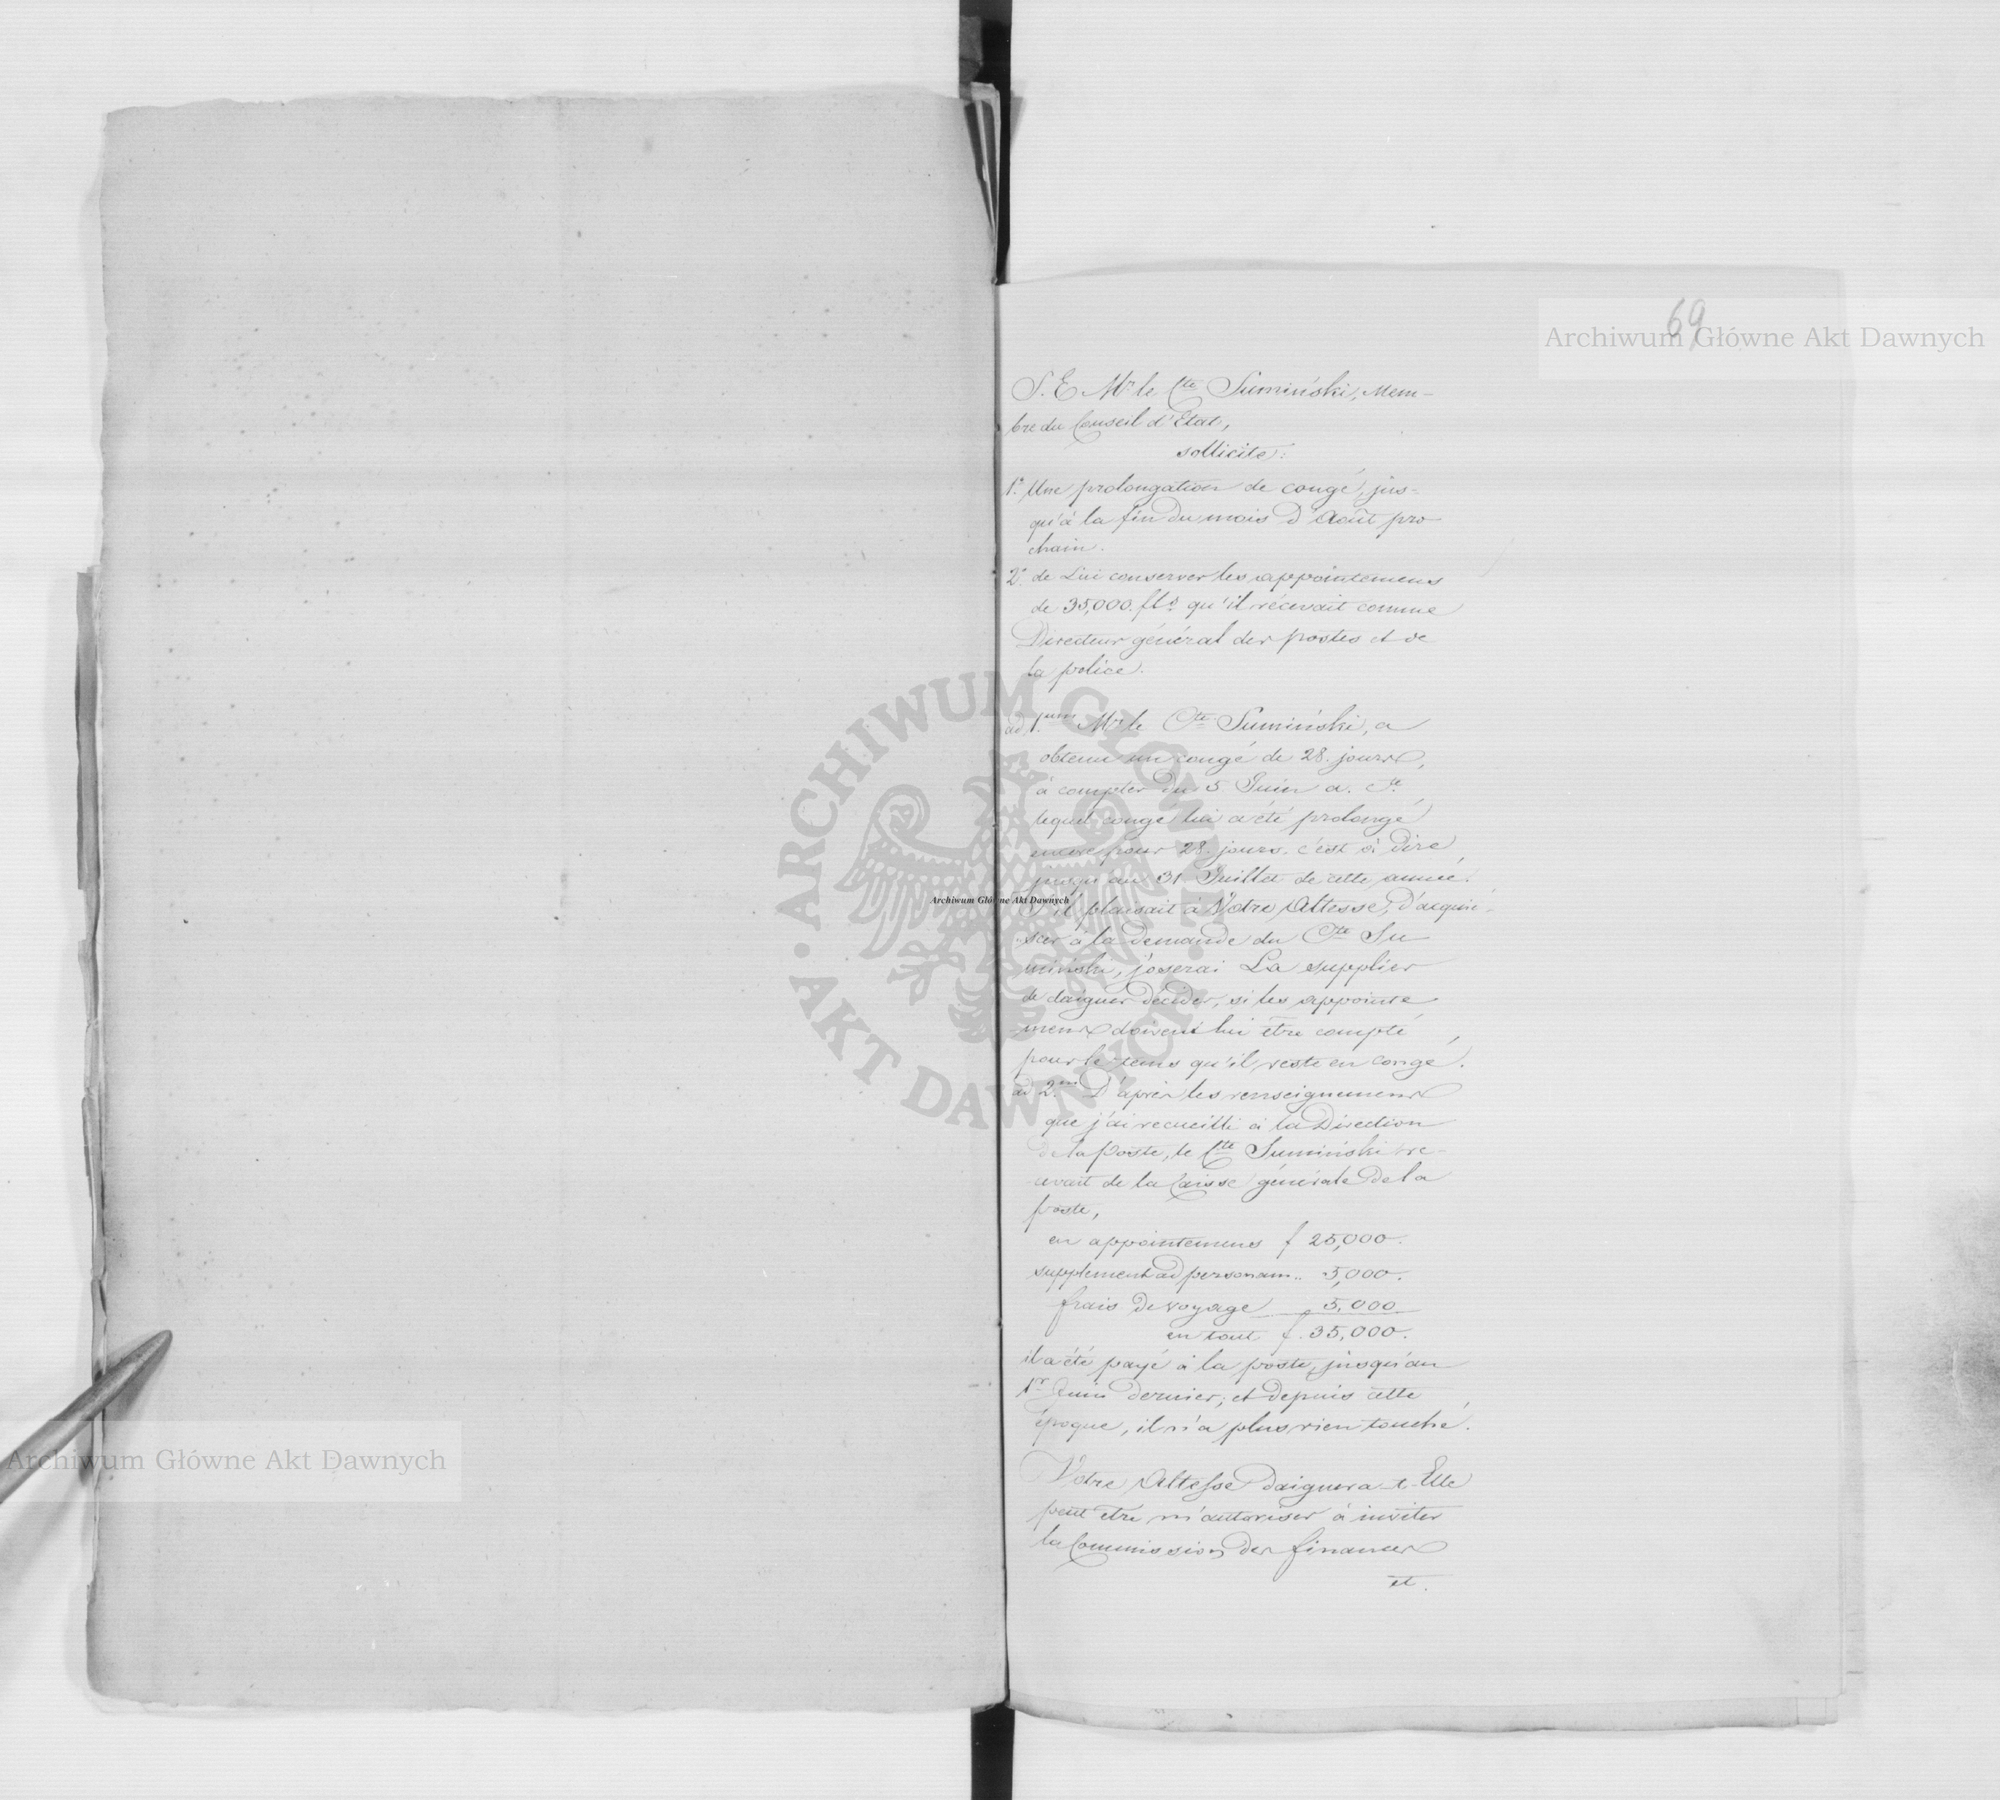 69
Archiwum Główne Akt Dawnych
S. E Mr le Cte Sumiński, Mem-
bre du Conseil d'Etat,
sollicite:
1º. Une prolongation de congé, jus-
qu'à la fin du mois d'Août pro
chain.
2º. de Lui conserver les appointemens
de 35,000. fls qu'il récevait comme
Directeur général des postes et de
la police.
ad 1um Mr le Cte Sumiński, a
obtenu un congé de 28. jours,
à compter du 5 Juin a. ct.
lequel congé lui a été prolongé
encore pour 28. jours. c'est à dire,
jusqu'au 31 Juillet de cette année.
S'il plaisait à Votre Altesse, d'acquié-
scer à la demande du Cte Su
miński, j'oserai La supplier
de daigner décider, si les appointe
mens doivent lui être compté
pour le tems qu'il reste en congé.
ad 2um D'après les renseignemens
que j'ai recueilli à la Direction
de la poste, le Cte Sumiński re-
cevait de la Caisse générale de la
poste,
en appointemens f 25,000.
supplement ad personam .. 5,000.
frais de voyage 5,000
en tout f. 35,000.
il a été payé à la poste, jusqu'au
1r Juin dernier; et depuis cette
époque, il n'a plus rien touché.
Votre Altesse daignera-t-Elle
peut être m'autoriser à inviter
la Commission des finances
et.
ARCHIWUM GŁÓWNE
AKT DAWNYCH
Archiwum Główne Akt Dawnych
Archiwum Główne Akt Dawnych